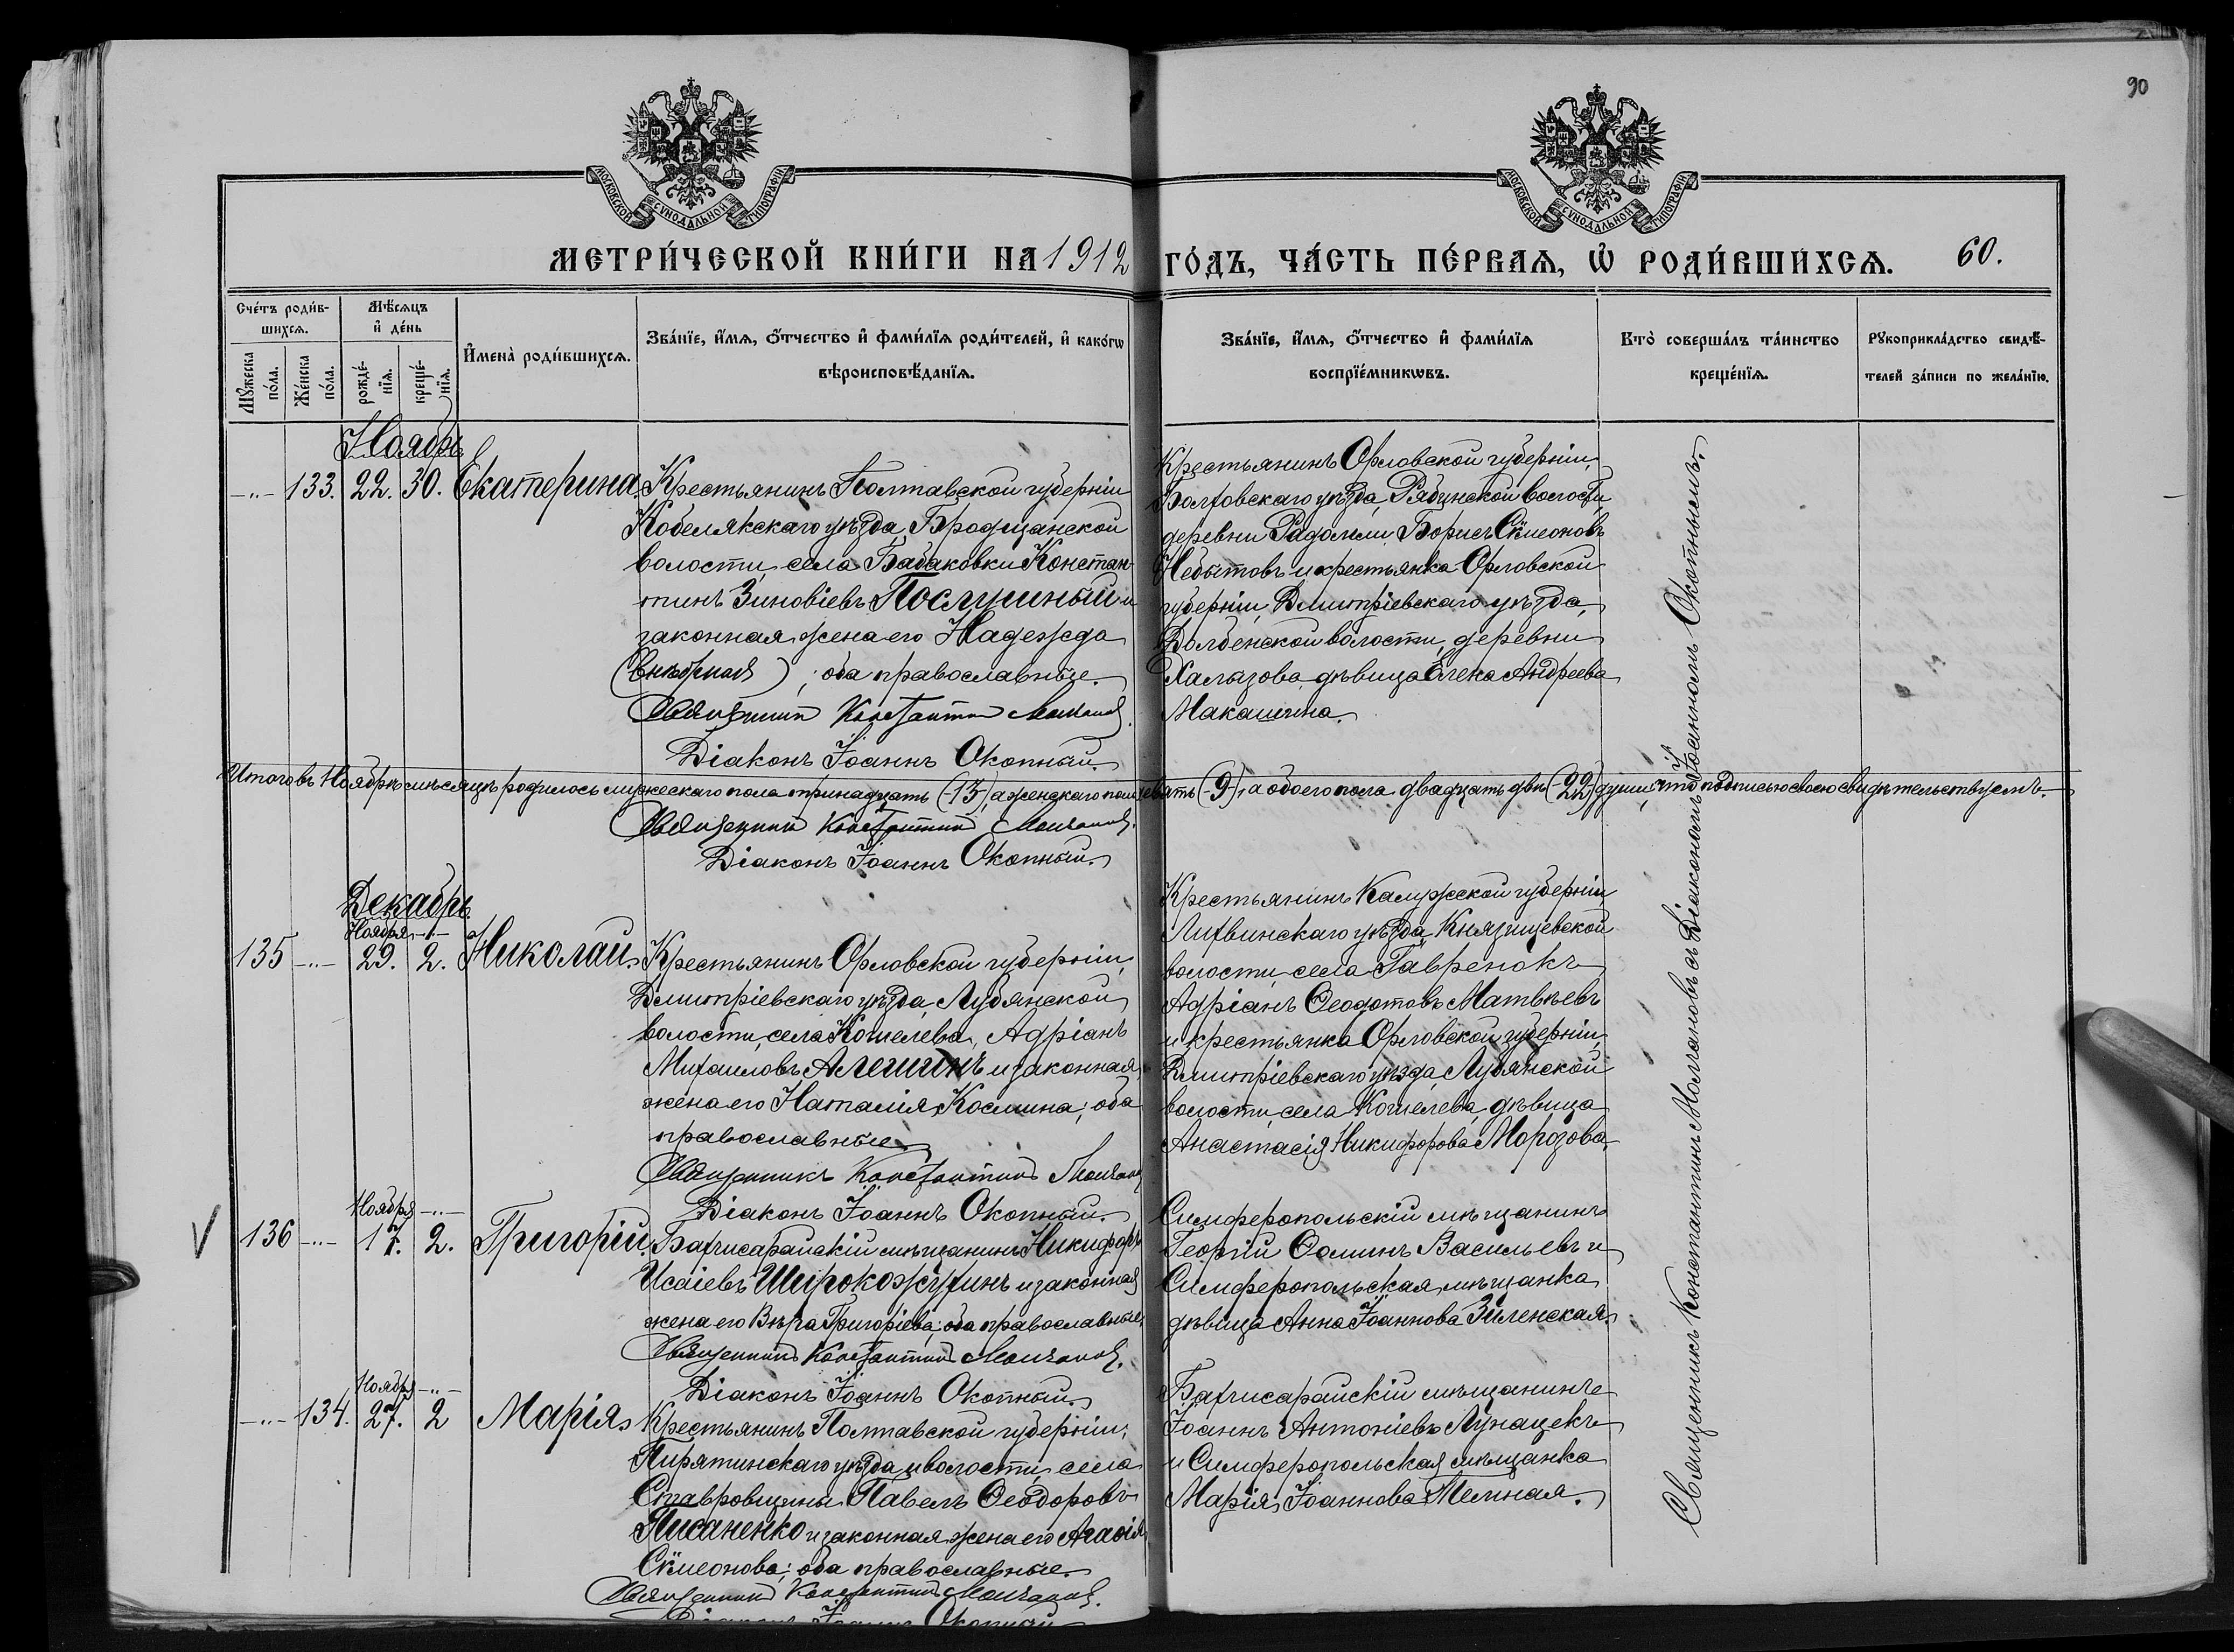 90
МОСКОВСКОЙ СУНОДАЛЬНОЙ ТИПОГРАФІИ
МОСКОВСКОЙ СУНОДАЛЬНОЙ ТИПОГРАФІИ
МЕТРИ́ЧЕСКОЙ КНИ́ГИ НА 1912 ГО́ДЪ, ЧА́СТЬ ПЕ́РВАѦ, Ѡ҆ РОДИ́ВШИХСѦ. 60.
Сче́тъ роди́вшихсѧ.
Мꙋ́жеска по́ла.
Же́нска по́ла.
Мѣ́сѧцъ и҆ де́нь
рожде́нїѧ.
креще́нїѧ.
И҆мена̀ роди́вшихсѧ.
Зва́нїе, и҆́мѧ, ѻ҆́тчество и҆ фами́лїѧ роди́телей, и҆ како́гѡ
вѣроисповѣ́данїѧ.
Зва́нїе, и҆́мѧ, ѻ҆́тчество и҆ фами́лїѧ
воспрїе́мникѡвъ.
Кто̀ соверша́лъ та́инство
креще́нїѧ.
Рꙋкоприкла́дство свидѣ́-
телей за́писи по жела́нїю.
Ноябрь
-"- 133. 22. 30. Екатерина
Крестьянинъ Полтавской губерніи
Кобелякскаго уѣзда, Бродщанской
волости, села Бабаковки Констан-
тинъ Зиновіевъ Послушный и
законная жена его Надежда
(внѣбрачная); оба православные.
Священникъ Константинъ Молчановъ.
Діаконъ Іоаннъ Окопный.
Крестьянинъ Орловской губерніи,
Болховскаго уѣзда, Рябинской волости,
деревни Радомли Борисъ Сѵмеоновъ
Небытовъ и крестьянка Орловской
губерніи, Дмитріевскаго уѣзда,
Долбенской волости, деревни
Халызова дѣвица Елена Андреева
Макашина.
Итого въ Ноябрѣ мѣсяцѣ родилось мужескаго пола тринадцать (13), а женскаго пола девять (9), а обоего пола двадцать двѣ (22) души, что подписью своею свидѣтельствуемъ.
Священникъ Константинъ Молчановъ.
Діаконъ Іоаннъ Окопный.
Декабрь
Ноября -"-
135 -"- 29. 2. Николай.
Крестьянинъ Орловской губерніи,
Дмитріевскаго уѣзда, Лубянской
волости, села Кошелева, Адріанъ
Михаиловъ Алешинъ и законная
жена его Наталія Космина; оба
православные.
Священникъ Константинъ Молчановъ
Діаконъ Іоаннъ Окопный.
Крестьянинъ Калужской губерніи
Лихвинскаго уѣзда, Князищевской
волости, села Гавренокъ
Адріанъ Ѳеодотовъ Матвѣевъ
и крестьянка Орловской губерніи
Дмитріевскаго уѣзда, Лубянской
волости, села Кошелева, дѣвица
Анастасія Никифорова Морозова.
Ноября -"-
V 136 -"- 17. 2. Григорій.
Бахчисарайскій мѣщанинъ Никифоръ
Исаіевъ Широкожухинъ и законная
жена его Вѣра Григоріева; оба православные.
Священникъ Константинъ Молчановъ.
Діаконъ Іоаннъ Окопный.
Симферопольскій мѣщанинъ
Георгій Ѳоминъ Васильевъ и
Симферопольская мѣщанка
дѣвица Анна Іоаннова Зиленская.
Ноября -"-
-"- 134. 27. 2 Марія
Крестьянинъ Полтавской губерніи,
Пирятинскаго уѣзда и волости, села
Ставровщины Павелъ Ѳеодоровъ
Писаненко и законная жена его Агаѳія
Сѵмеонова; оба православные.
Священникъ Константинъ Молчановъ.
Діаконъ Іоаннъ Окопный
Бахчисарайскій мѣщанинъ
Іоаннъ Антоніевъ Лунацекъ
и Симферопольская мѣщанка
Марія Іоаннова Темная.
Священникъ Константинъ Молчановъ съ Діакономъ Іоанномъ Окопнымъ.